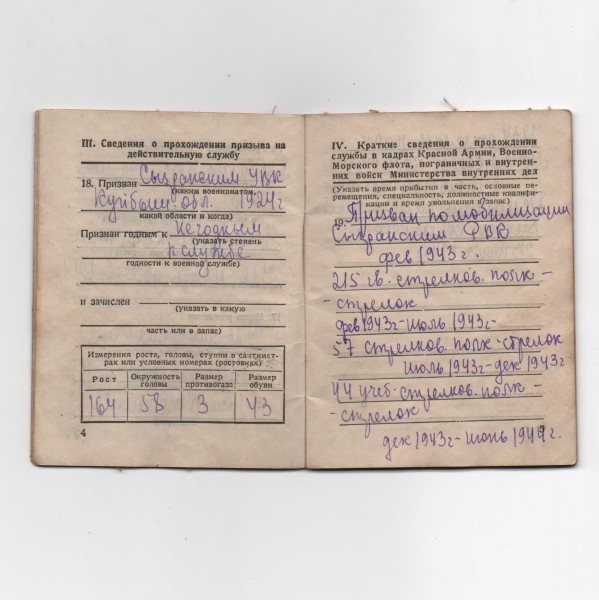 III. Сведения о прохождении призыва на
действительную службу
18. Призван Сызранским УВК
(каким военкоматом,
Куйбыш. обл. 1924 г
какой области и когда)
Признан годным к Негодным
(указать степень
к службе
годности к военной службе)
и зачислен
(указать в какую
часть или в запас)
Измерения роста, головы, ступни в сантимет-
рах или условных номерах (ростовках)
Рост Окружность головы Размер противогаза Размер обуви
164 58 3 43
4
IV. Краткие сведения о прохождении
службы в кадрах Красной Армии, Военно-
Морского флота, пограничных и внутрен-
них войск Министерства внутренних дел
(Указать время прибытия в часть, основные пе-
ремещения, специальность, должностные квалифи-
кации и время увольнения в запас)
19. Призван по мобилизации
Сызранским РВК
фев 1943 г.
215 гв. стрелков. полк -
- стрелок
фев 1943 г - июль 1943 г -
57 стрелков. полк - стрелок
июль 1943 г - дек 1943 г
44 учеб. стрелков. полк -
- стрелок
дек 1943 г - июнь 1944 г.